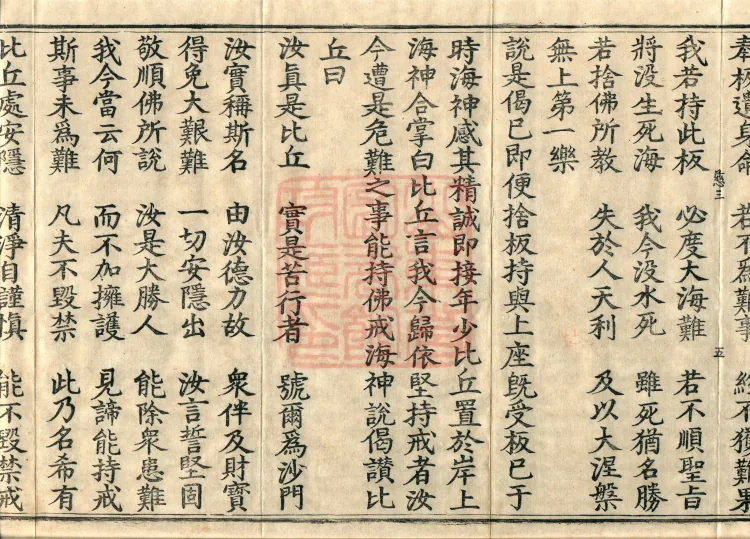 奉板遺身命　若不爲難事　終不獲難果
我若持此板　必度大海難　若不順聖旨
將没生死海　我今没水死　雖死猶名勝
若捨佛所教　失於人天利　及以大涅槃
無上第一樂
說是偈已即便捨板持與上座旣受板已于
時海神感其精誠即接年少比丘置於岸上
海神合掌白比丘言我今歸依堅持戒者汝
今遭是危難之事能持佛戒海神說偈讃比
丘曰
汝眞是比丘　實是苦行者　號爾爲沙門
汝實稱斯名　由汝德力故　衆伴及財寶
得免大艱難　一切安隱出　汝言誓堅固
敬順佛所說　汝是大勝人　能除衆患難
我今當云何　而不加擁護　見諦能持戒
斯事未爲難　凡夫不毀禁　此乃名希有
比丘處安隱　清淨自謹愼　能不毀禁戒
五